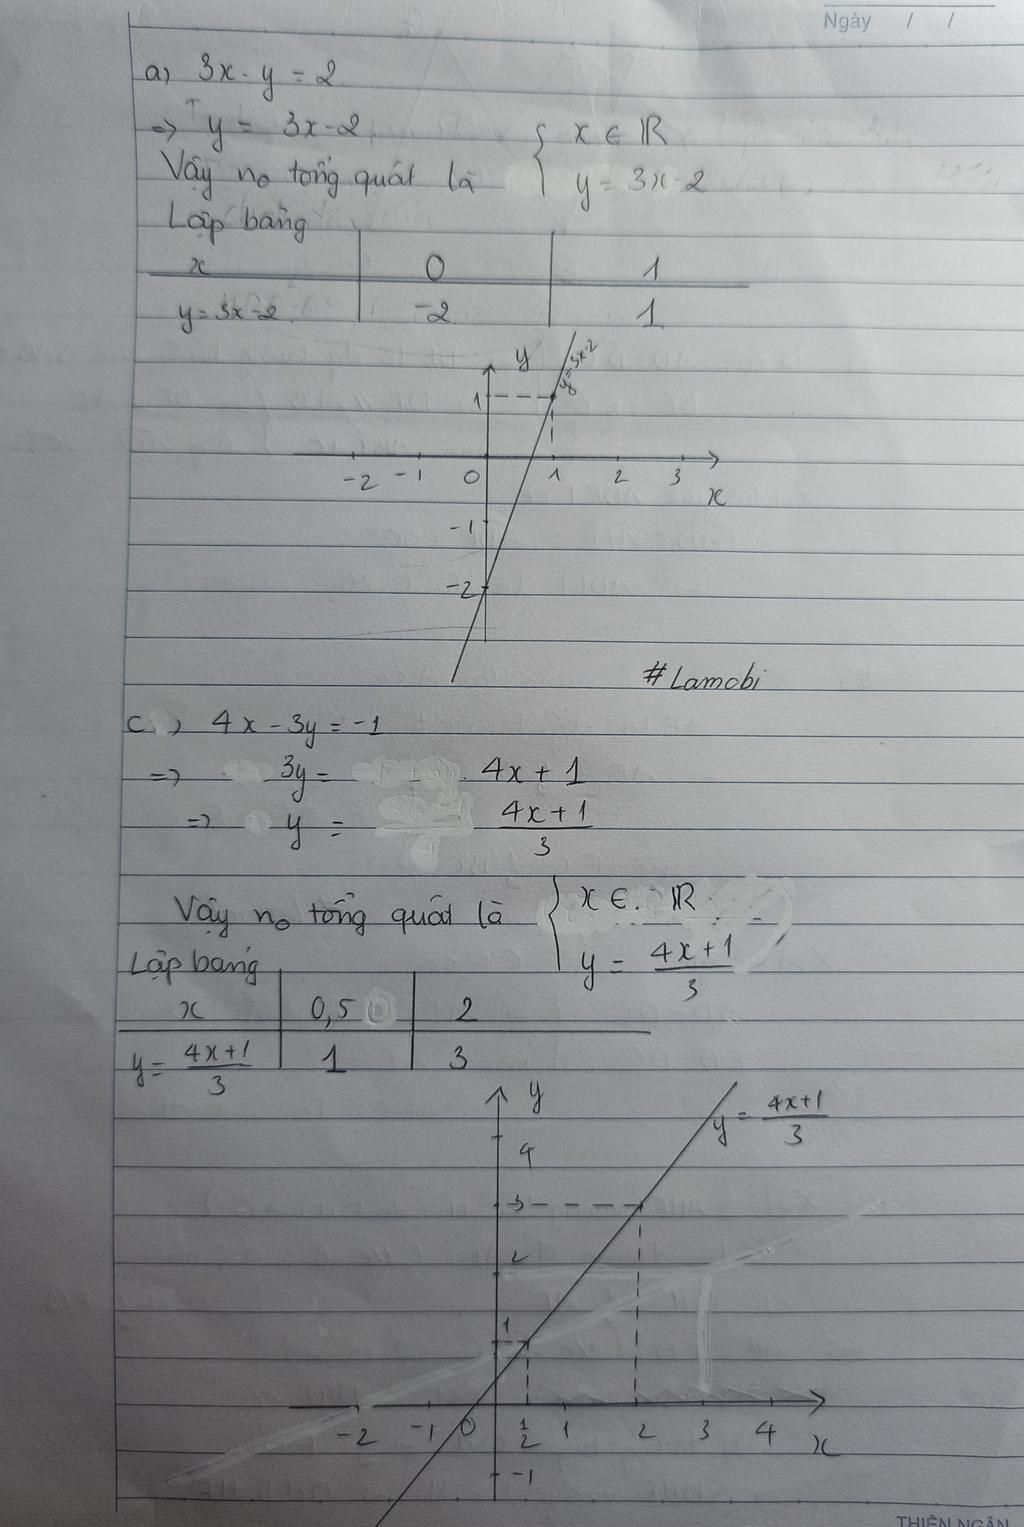 Ngày / /
a) 3x - y = 2
=> y = 3x - 2
{ x ∈ ℝ
Vậy no tổng quát là
y = 3x - 2
Lập bảng
x 0 1
y = 3x - 2 -2 1
y
y = 3x - 2
1
-2 -1 0 1 2 3
x
-1
-2
#Lamobi
c) 4x - 3y = -1
=> 3y = 4x + 1
=> y = \frac{4x+1}{3}
Vậy no tổng quát là { x ∈ ℝ
y = \frac{4x+1}{3}
Lập bảng
x 0,5 2
y = \frac{4x+1}{3} 1 3
y
y = \frac{4x+1}{3}
4
3
2
1
-2 -1 0 \frac{1}{2} 1 2 3 4
x
-1
THIÊN NGÂN